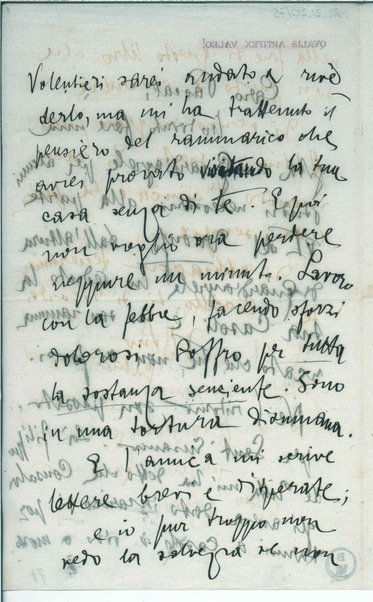 QVALIS ARTIFEX VALEO
Volentieri sarei andato a rive
derlo, ma mi ha trattenuto il
pensiero del rammarico che
avrei provato visitando la tua
casa senza di te. E poi
non voglio ora perdere
neppure un minuto. Lavoro
con la febbre, facendo sforzi
dolorosi. Soffro per tutta
la sostanza senciente. Sono
in una tortura disumana.
E l'amica mi scrive
lettere brevi e disperate;
e io pur troppo non
vedo la salvezza se non